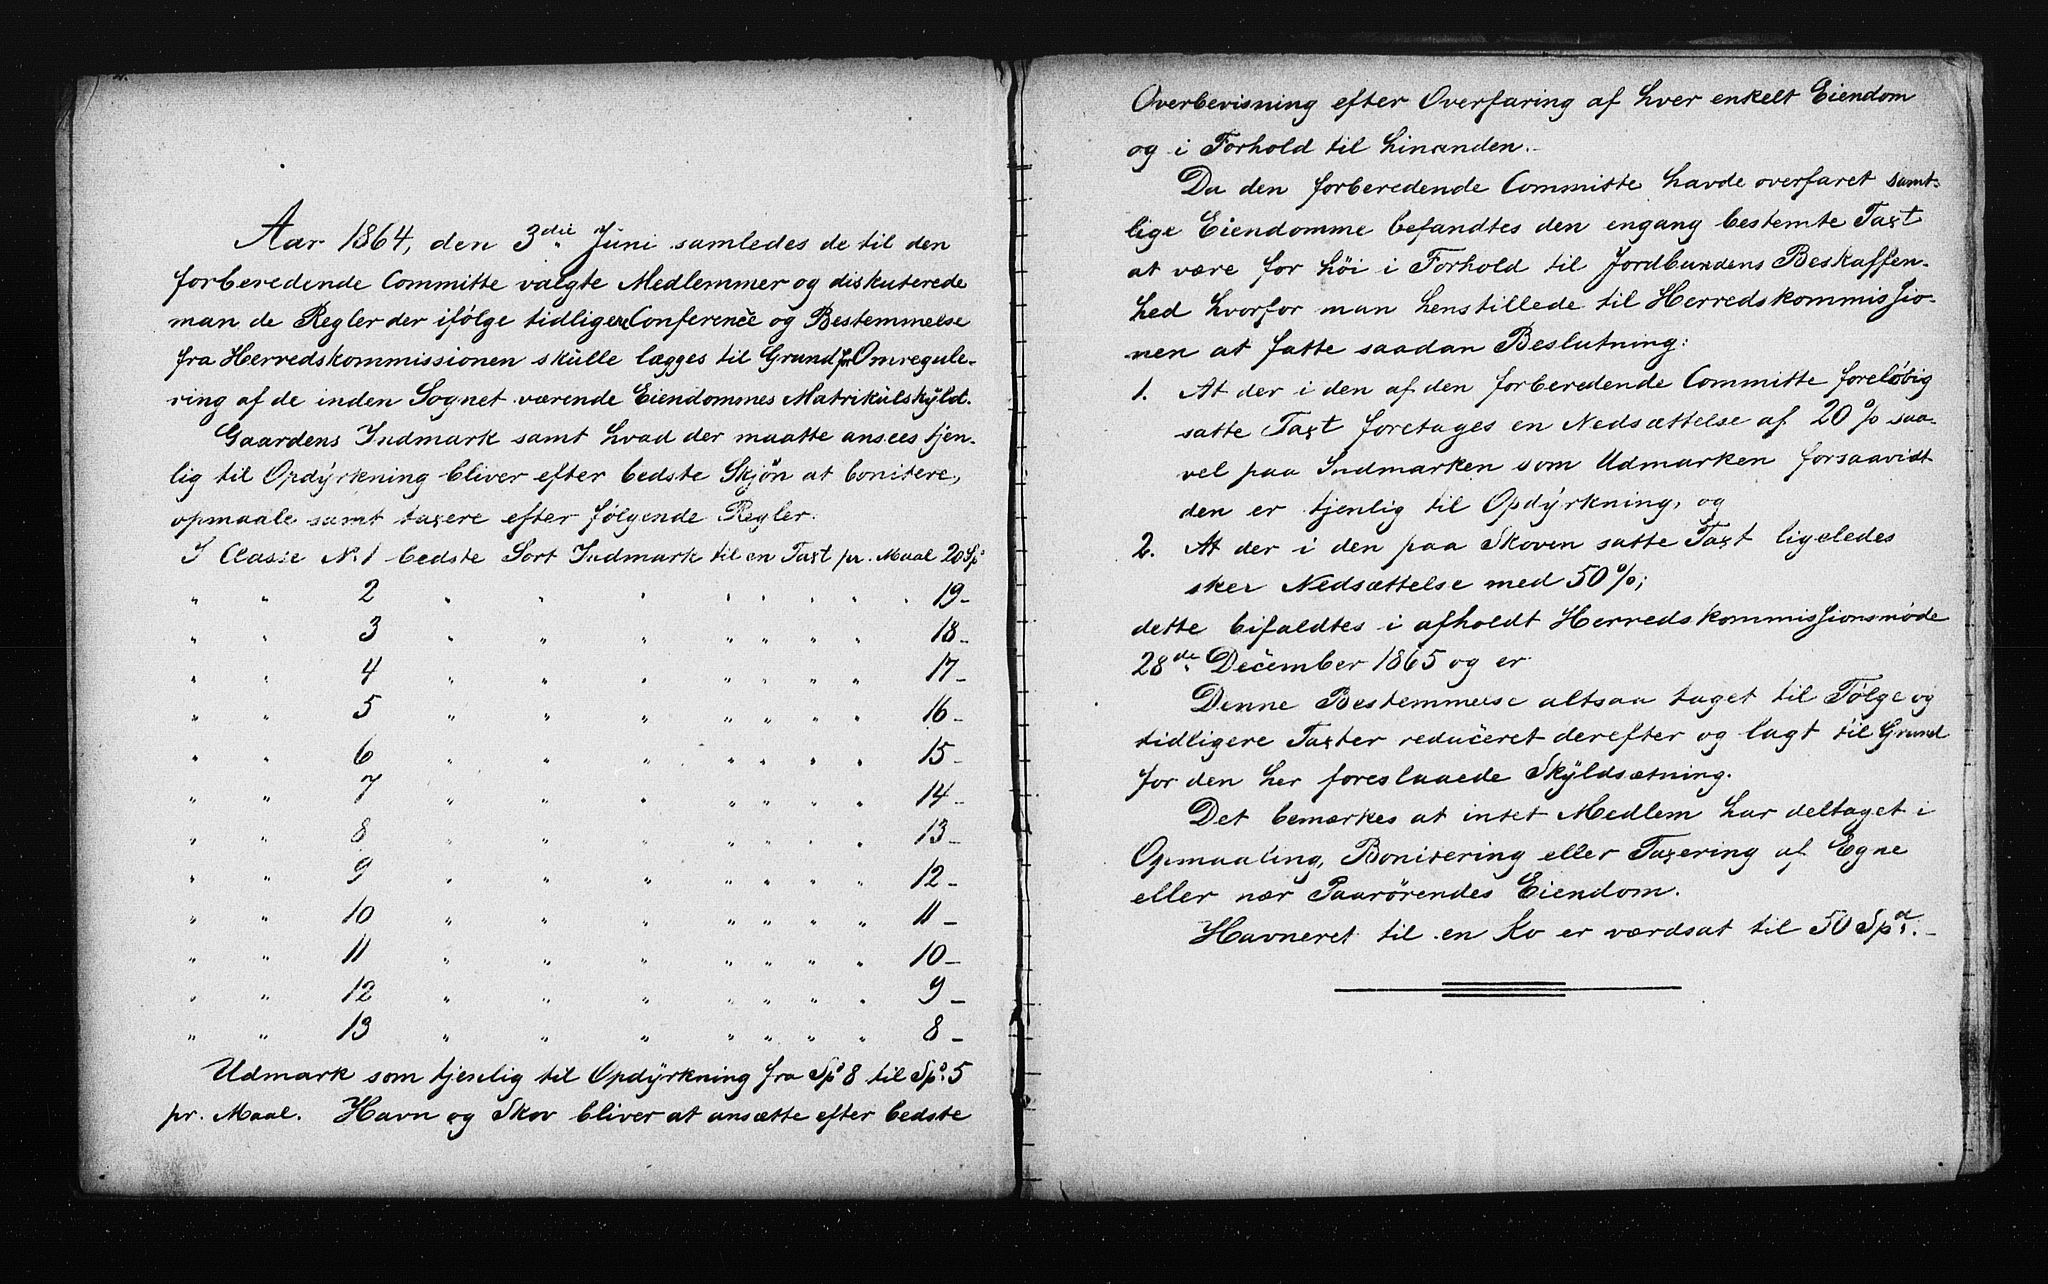 Aar 1864, den 3die Juni samledes de til den
forberedende Committe valgte Medlemmer og diskuterede
man de Regler der ifölge tidligere Conference og Bestemmelse
fra Herredskommissionen skulle lægges til Grund for Omregule-
ring af de inden Sognet værende Eiendommes Matrikulskyld.
Gaardens Indmark samt hvad der maatte ansees tjen-
lig til Opdyrkning bliver efter bedste Skjön at bonitere,
opmaale samt taxere efter fölgende Regler.
I Classe No 1 bedste Sort Indmark til en Taxt pr. Maal 20 Spd
" " 2 " " " " " " " " 19-
" " 3 " " " " " " " 18-
" " 4 " " " " " " " 17-
" " 5 " " " " " " " 16-
" " 6 " " " " " " " 15-
" " 7 " " " " " " " 14-
" " 8 " " " " " " " 13-
" " 9 " " " " " " " 12-
" " 10 " " " " " " " 11-
" " 11 " " " " " " " 10-
" " 12 " " " " " " " 9-
" " 13 " " " " " " " 8-
Udmark som tjenlig til Opdyrkning fra Spd 8 til Spd. 5
pr. Maal. Havn og Skov bliver at ansætte efter bedste
Overbevisning efter Overfaring af hver enkelt Eiendom
og i Forhold til hinanden.-
Da den forberedende Committe havde overfaret samt-
lige Eiendomme befandtes den engang bestemte Taxt
at være for höi i Forhold til Jordbundens Beskaffen-
hed hvorfor man henstillede til Herredskommissio-
nen at fatte saadan Beslutning:
1. At der i den af den forberedende Committe foreløbig
satte Taxt foretages en Nedsættelse af 20 % saa-
vel paa Indmarken som Udmarken forsaavidt
den er tjenlig til Opdyrkning, og
2. At der i den paa Skoven satte Taxt ligeledes
sker Nedsættelse med 50 %;
dette bifaldtes i afholdt Herredskommissionsmöde
28de December 1865 og er
Denne Bestemmelse altsaa taget til Følge og
tidligere Taxter reduceret derefter og lagt til Grund
for den her foreslaaede Skyldsætning.
Det bemærkes at intet Medlem har deltaget i
Opmaaling, Bonitering eller Taxering af Egne
eller nær Paarörendes Eiendom.
Havneret til en Ko er værdsat til 50 Spd.-